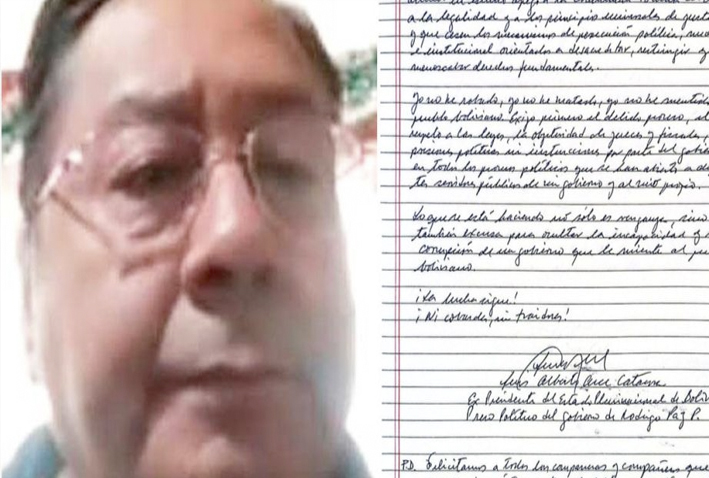 a la legalidad y a los principios
y que cesen los mecanismos de persecución política,
e institucional orientados a desacreditar, restringir y
menoscabar derechos fundamentales.
Yo no he robado, yo no he matado, yo no he mentido
pueblo boliviano. Exijo primero el debido proceso, el
respeto a las leyes, la objetividad de jueces y fiscales,
presiones políticas ni instrucciones por parte del gobi
en todos los procesos políticos que se han abierto a
tes servidores públicos de mi gobierno y al mío propio.
Lo que se está haciendo no sólo es venganza, sino
también excusa para ocultar la incapacidad y
corrupción de un gobierno que le miente al pue
boliviano.
¡La lucha sigue!
¡Ni cobardes, ni traidores!
Luis Alberto Arce Catacora
Ex Presidente del Estado Plurinacional de Boliv
Preso Político del gobierno de Rodrigo Paz P.
P.D. Felicitamos a todos los compañeros y compañeras que